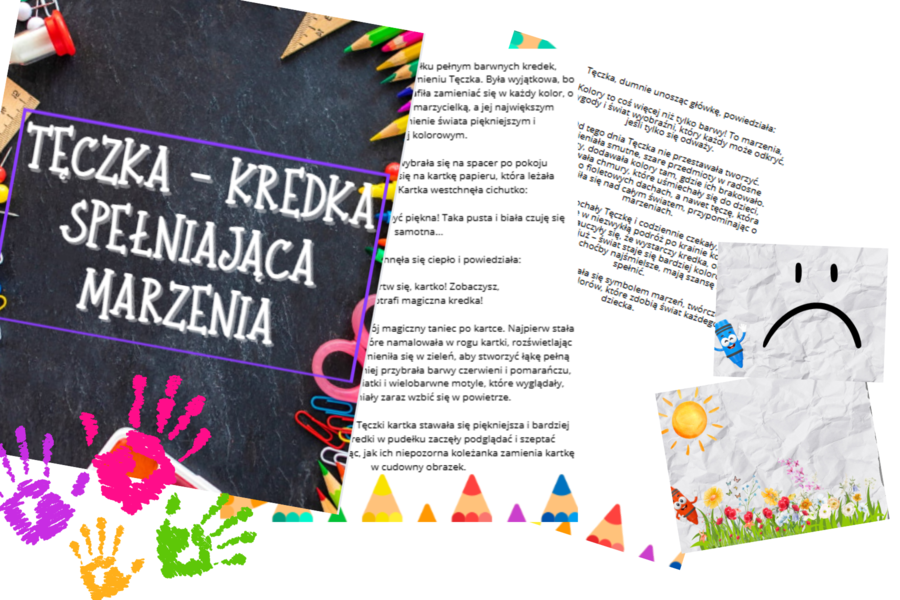 TĘCZKA – KREDKA
SPEŁNIAJĄCA
MARZENIA
łku pełnym barwnych kredek,
mieniu Tęczka. Była wyjątkowa, bo
afiła zamieniać się w każdy kolor, o
marzycielką, a jej największym
nienie świata piękniejszym i
j kolorowym.
wybrała się na spacer po pokoju
się na kartkę papieru, która leżała
Kartka westchnęła cichutko:
yć piękna! Taka pusta i biała czuję się
samotna...
hnęła się ciepło i powiedziała:
rtw się, kartko! Zobaczysz,
otrafi magiczna kredka!
ój magiczny taniec po kartce. Najpierw stała
óre namalowała w rogu kartki, rozświetlając
mieniła się w zieleń, aby stworzyć łąkę pełną
niej przybrała barwy czerwieni i pomarańczu,
iatki i wielobarwne motyle, które wyglądały,
iały zaraz wzbić się w powietrze.
Tęczki kartka stawała się piękniejsza i bardziej
redki w pudełku zaczęły podglądać i szeptać
ąc, jak ich niepozorna koleżanka zamienia kartkę
w cudowny obrazek.
Tęczka, dumnie unosząc główkę, powiedziała:
Kolory to coś więcej niż tylko barwy! To marzenia,
ygody i świat wyobraźni, który każdy może odkryć,
jeśli tylko się odważy.
d tego dnia Tęczka nie przestawała tworzyć.
ieniała smutne, szare przedmioty w radosne
y, dodawała kolory tam, gdzie ich brakowało.
vała chmury, które uśmiechały się do dzieci,
o fioletowych dachach, a nawet tęczę, która
iła się nad całym światem, przypominając o
marzeniach.
ochały Tęczkę i codziennie czekały,
w niezwykłą podróż po krainie ko
auczyły się, że wystarczy kredka, o
już – świat staje się bardziej koloro
choćby najśmielsze, mają szansę
spełnić.
ała się symbolem marzeń, twórcz
olorów, które zdobią świat każdego
dziecka.